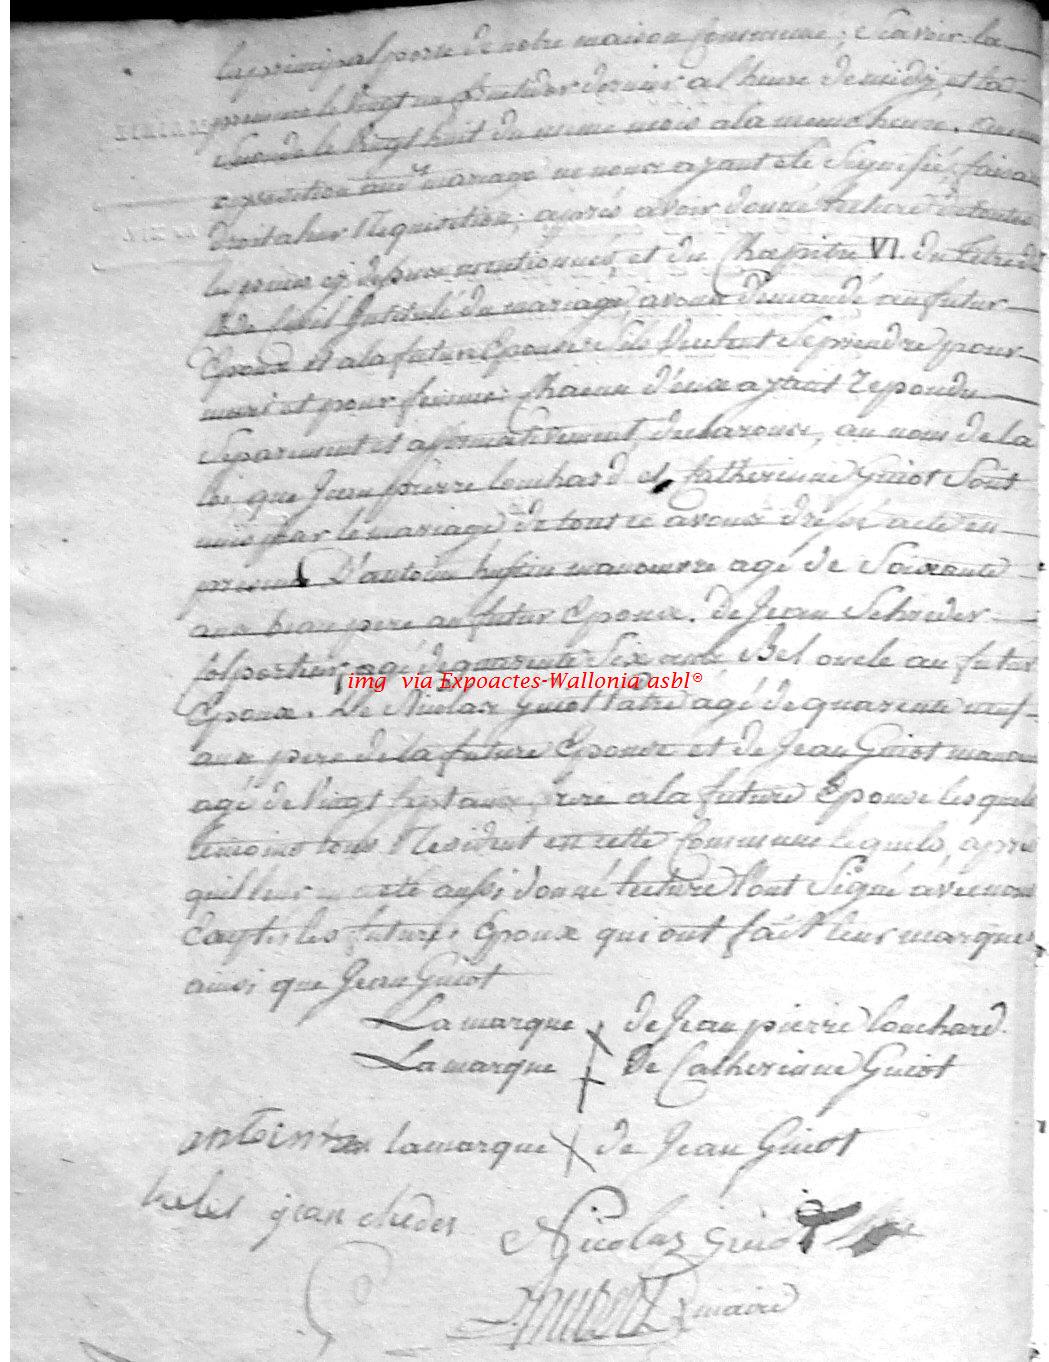 la principal porte de notre maison commune; Scavoir la
premiere le vingt un dernier a l'heure de midy, et la
Seconde le vingt huit du meme mois a la meme heure. aucune
opposition audt mariage ne nous ayant eté Signifié, faisant
droit a leur Requisition; aprés avoir donné lecture de toutes
les pieces cy dessus mentionnés, et du Chapitre VI. du titre
Code Civil Intitulé du mariage, avons demandé au futur
Epoux et a la future Epouse s'ils veulent se prendre pour
mari et pour femme; Chacun d'eux ayant repondu
Séparement et affirmativement, declarons, au nom de la
loi, que Jean pierre louchard et Catherinne Guiot Sont
unis par le mariage de tout ce avons dressé acte en
presence D'antoine manoeuvre agé de Soixante
ans beau pere au futur Epoux. De Jean Schreder
Colporteur agé de quarente Six ans Bel oncle au futur
img via Expoactes-Wallonia asbl®
Epoux. De Nicolas Guiot agé de quarente neuf
ans pere de la future Epouse et de Jean Guiot
agé de vingt sept ans, frere a la future Epouse lesquels
temoins tous Resident en cette Commune lequels, apres
qu'il leur en a eté aussi donné lecture l'ont Signé avec nous
Exceptés les futurs Epoux qui ont fait leur marque
ainsi que Jean Guiot
La marque de Jean pierre louchard.
La marque De Catherinne Guiot
antoin la marque de Jean Guiot
jean
Nicolas Guiot
maire